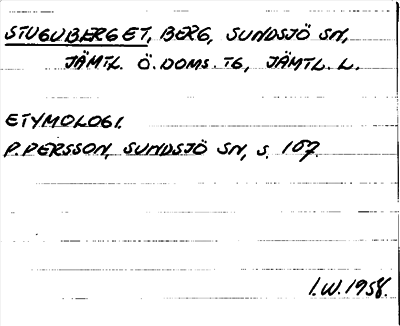 STUGUBERGET, BERG, SUNDSJÖ SN,
JÄMTL. Ö. DOMS. TG, JÄMTL. L.
ETYMOLOGI.
P. PERSSON, SUNDSJÖ SN, S. 107.
I.W. 1958.